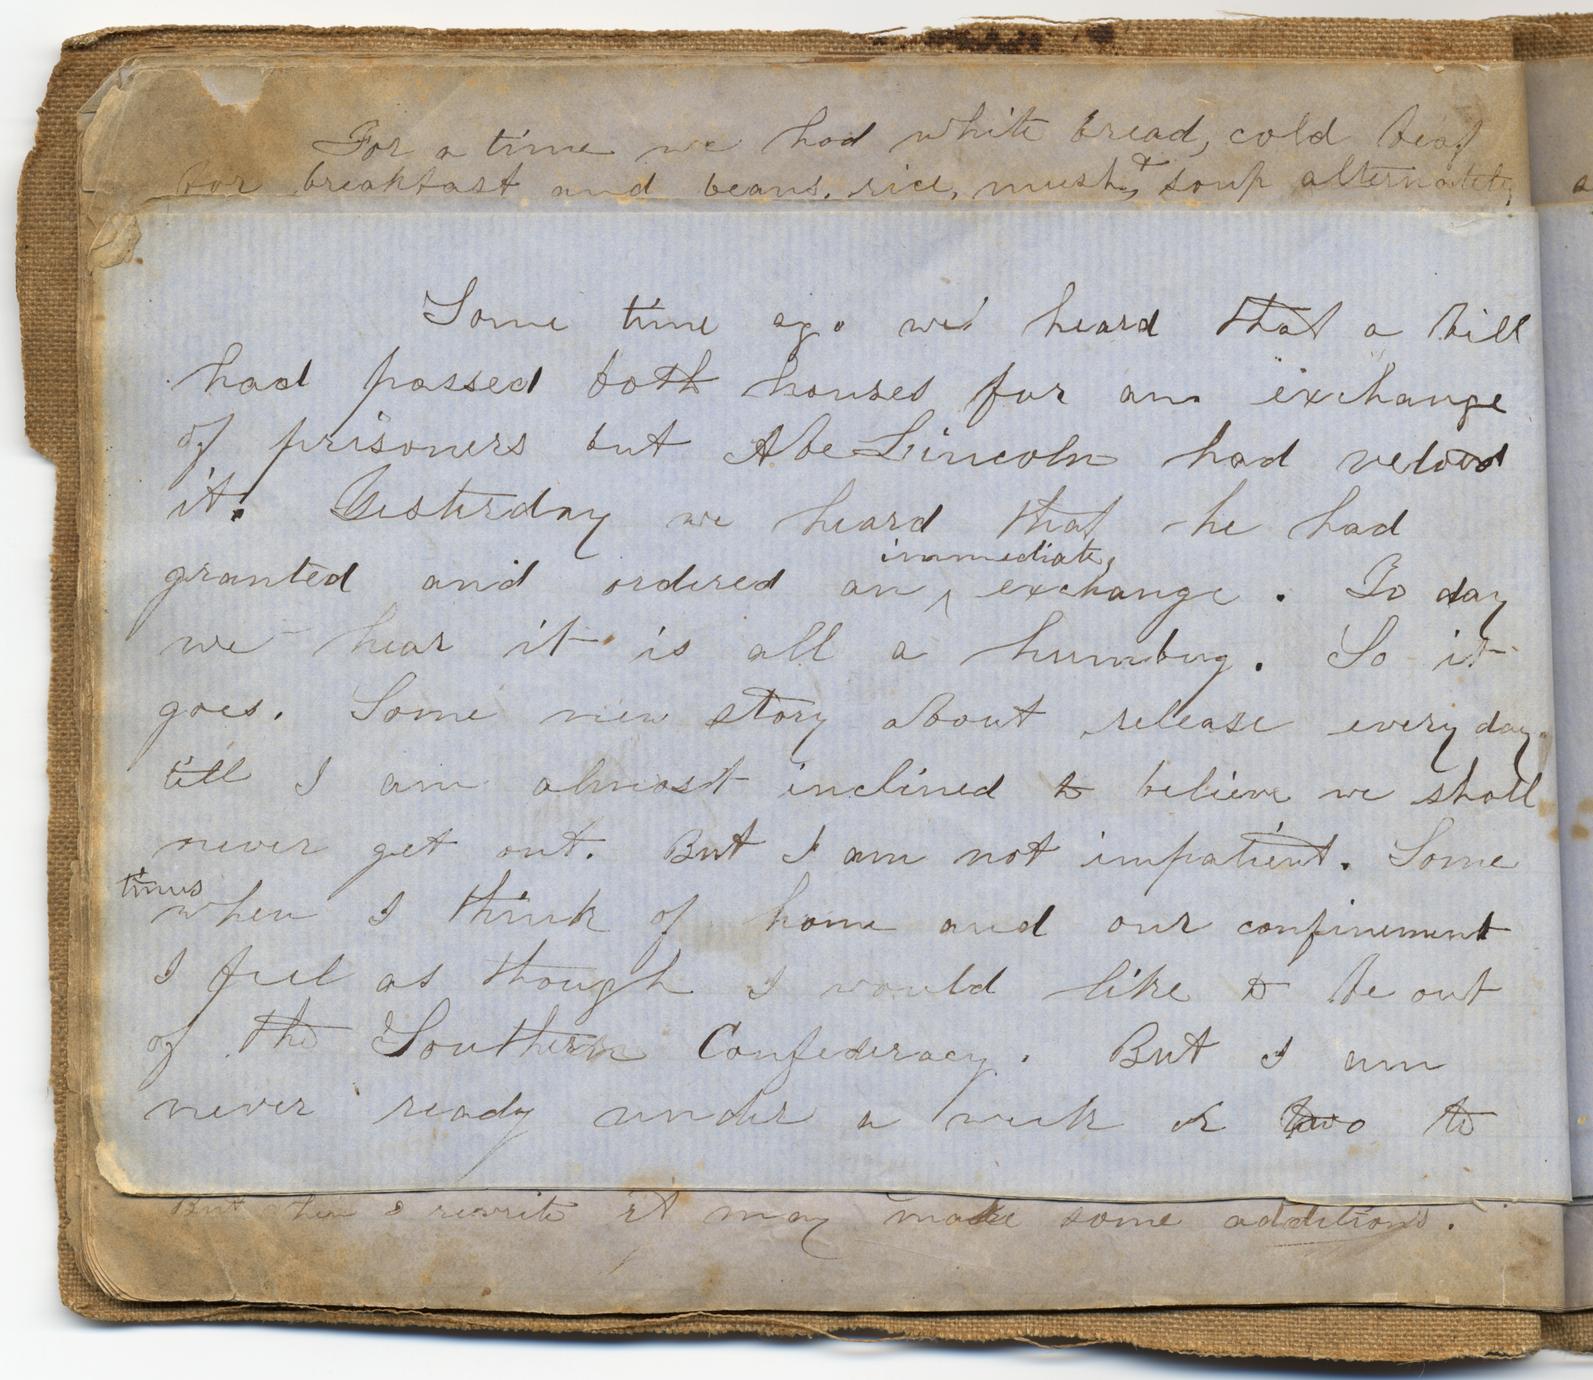 For a time we had white bread, cold beaf
for breakfast and beans, rice, mush, & soup alternately,
Some time ago we heard that a bill
had passed both houses for an exchange
of prisoners but Abe Lincoln had vetoed
it. Yesterday we heard that he had
immediate
granted and ordered an ^ exchange. To day
we hear it is all a humbug. So it
goes. Some new story about release every day
till I am almost inclined to believe we shall
never get out. But I am not impatient. Some
times
when I think of home and our confinement
I feel as though I would like to be out
of the Southern Confederacy. But I am
never ready under a week or two to
But when I rewrite it may make some additions.